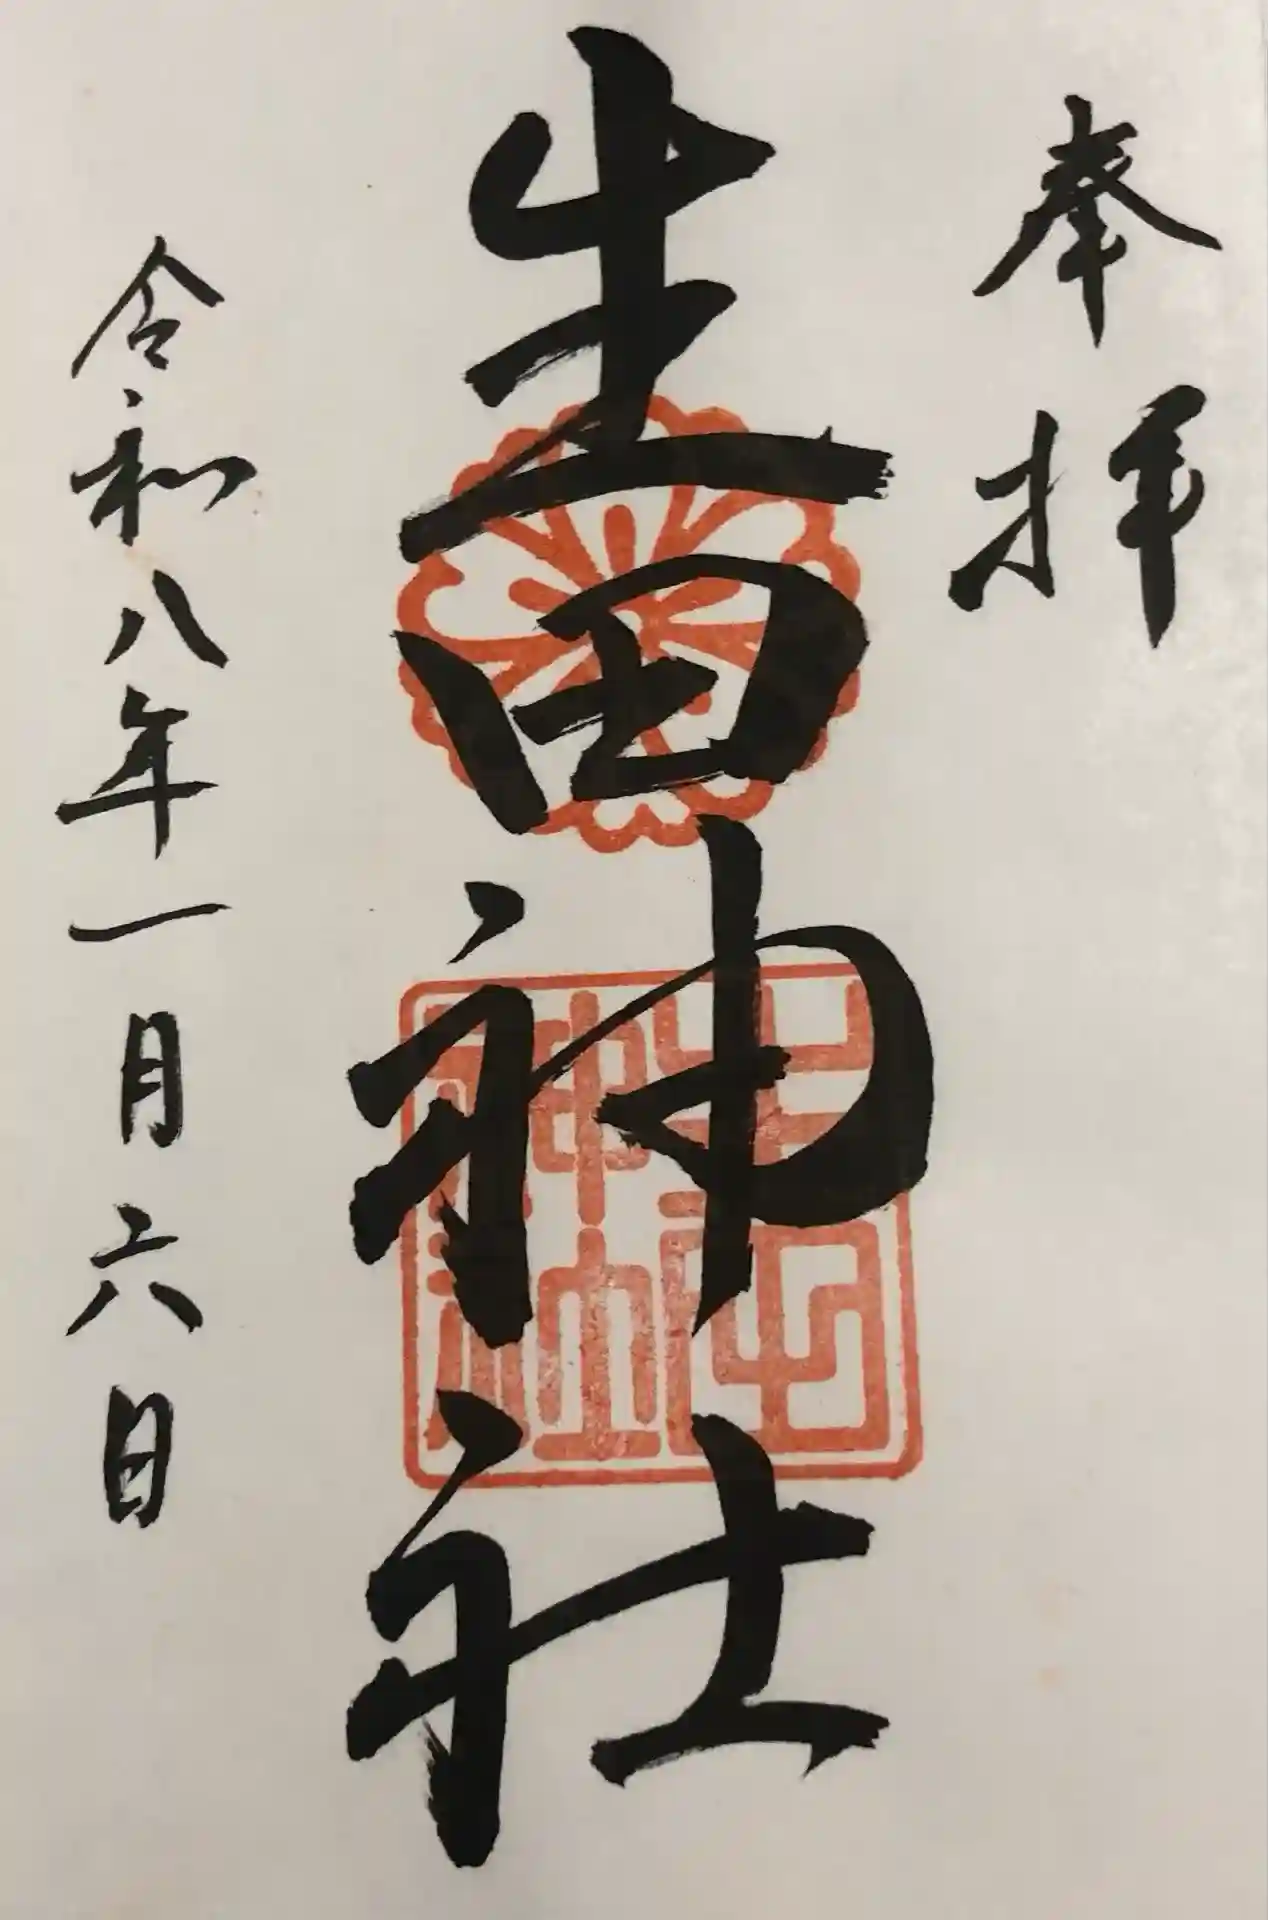 奉拝
生田神社
生田神社
令和八年一月六日